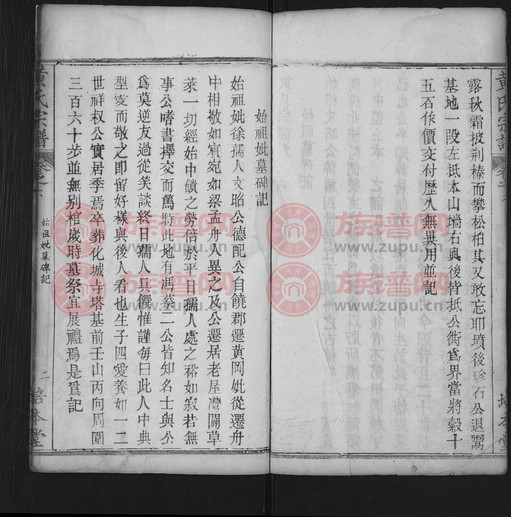 露秋霜披荆榛而攀松柏其又敢忘耶墳後珍石公退鬻
基地一段左抵本山端右與後皆抵公衖爲界當將穀十
五石作價交付歷久無異用並記
黃氏宗譜
始祖妣墓碑記
始祖妣徐孺人文昭公德配公自饒郡遷黃岡妣從遷舟
中相敬如賓宛如梁孟舟人異之及公遷居老屋灣闢草
萊一切經始中饋之勞倍於平日孺人處之裕如寂若無
事公嗜書擇交而篤時此地有馮蔡二公皆知名士與公
爲莫逆友過從笑談終日孺人具饌惟謹每曰此人中典
型交而敬之即留好樣與後人看也生子四愛養如一二
世祥叔公實居季焉卒葬化城寺塔基前壬山丙向周圍
三百六十步並無别棺歲時墓祭宜展禮焉是爲記
黃氏宗譜
始祖妣墓碑記
二
培本堂
族譜网
www.zupu.cn
族譜网
www.zupu.cn